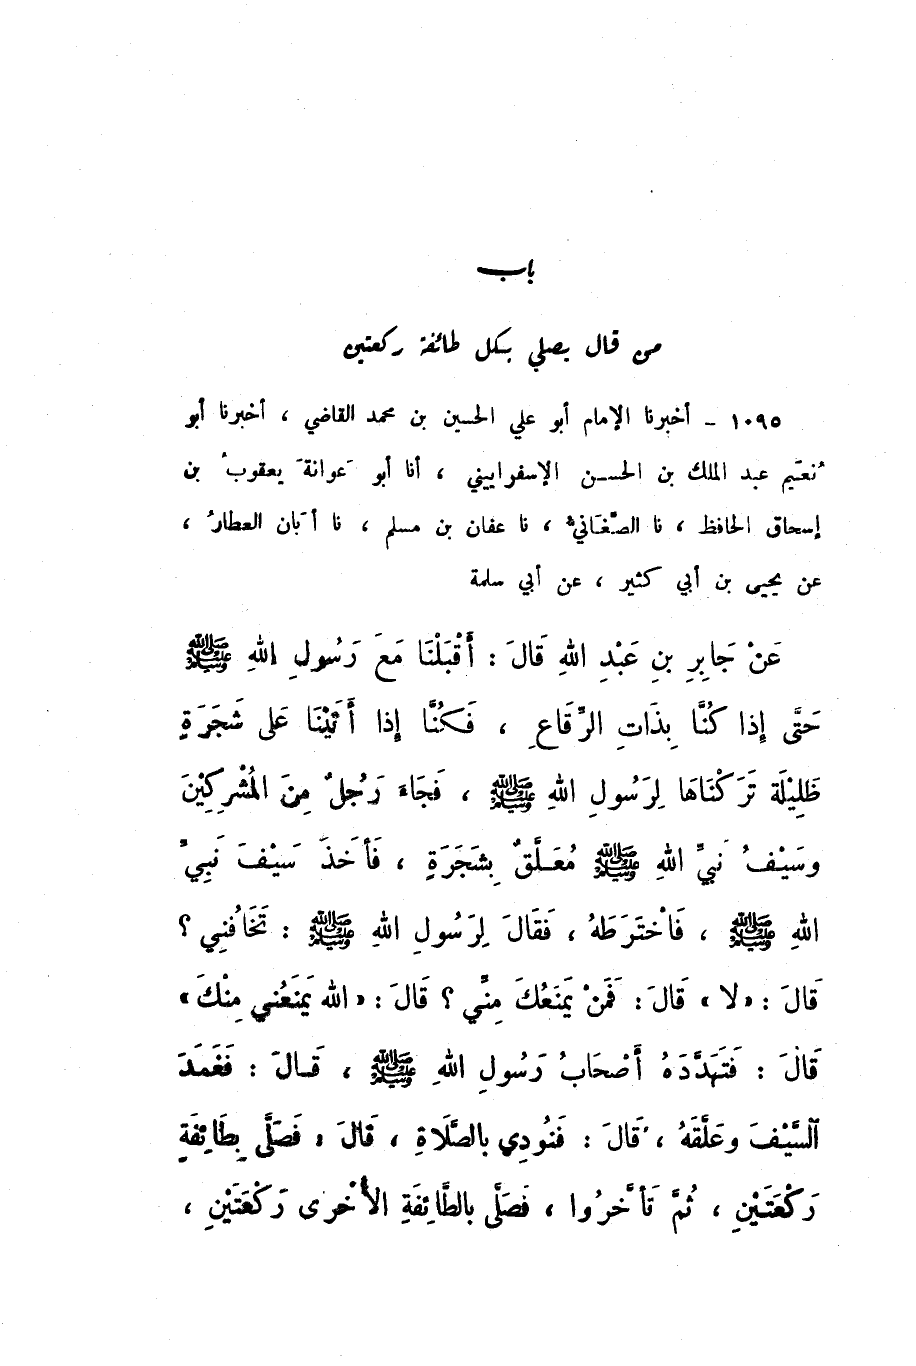 باب
من قال يصلي بكل طائفة ركعتين
١٠٩٥ - أخبرنا الإمام أبو علي الحسين بن محمد القاضي ، أخبرنا أبو
نُعَيم عبد الملك بن الحسن الإسفراييني ، أنا أبو عَوانةَ يعقوبُ بن
إسحاق الحافظ ، نا الصَّغَانيُّ ، نا عفان بن مسلم ، نا أَبان العطارُ ،
عن يحيى بن أبي كثير ، عن أبي سلمة
عَنْ جَابِرِ بنِ عَبْدِ اللهِ قَالَ : أَقْبَلْنَا مَعَ رَسُولِ اللهِ ﷺ
حَتَّى إِذا كُنَّا بِذَاتِ الرِّقَاعِ ، فَكُنَّا إِذا أَتَيْنَا عَلى شَجَرَةٍ
ظَلِيْلَة تَرَكْنَاهَا لِرَسُولِ اللهِ ﷺ ، فَجَاءَ رَجُلٌ مِنَ المُشْرِكِيْنَ
وسَيْفُ نَبيِّ اللهِ ﷺ مُعَلَّقٌ بِشَجَرَةٍ ، فَأَخذَ سَيْفَ نَبِيِّ
اللهِ ﷺ ، فَاخْتَرَطَهُ ، فَقَالَ لِرَسُولِ اللهِ ﷺ : تَخَافُنِي ؟
قَالَ : « لا » قَالَ : فَمَنْ يَمنَعُكَ مِنِّي ؟ قَالَ : « الله يَمنَعُني مِنْكَ »
قَالَ : فَتَهَدَّدَهُ أَصْحَابُ رَسُولِ اللهِ ﷺ ، قَالَ : فَغَمَدَ
السَّيْفَ وعَلَّقَهُ ، قَالَ : فَنُودِي بالصَّلَاةِ ، قَالَ ، فَصَلَّى بِطَائِفَةٍ
رَكْعَتَيْنِ ، ثُمَّ تَأَخَّرُوا ، فَصَلَّى بالطَّائِفَةِ الأخْرى رَكْعَتَيْنِ ،